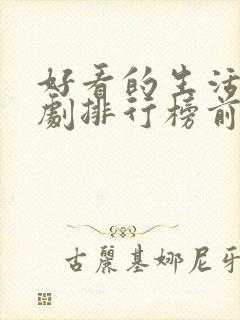 好看的生活
劇排行榜前
古麗基娜尼牙